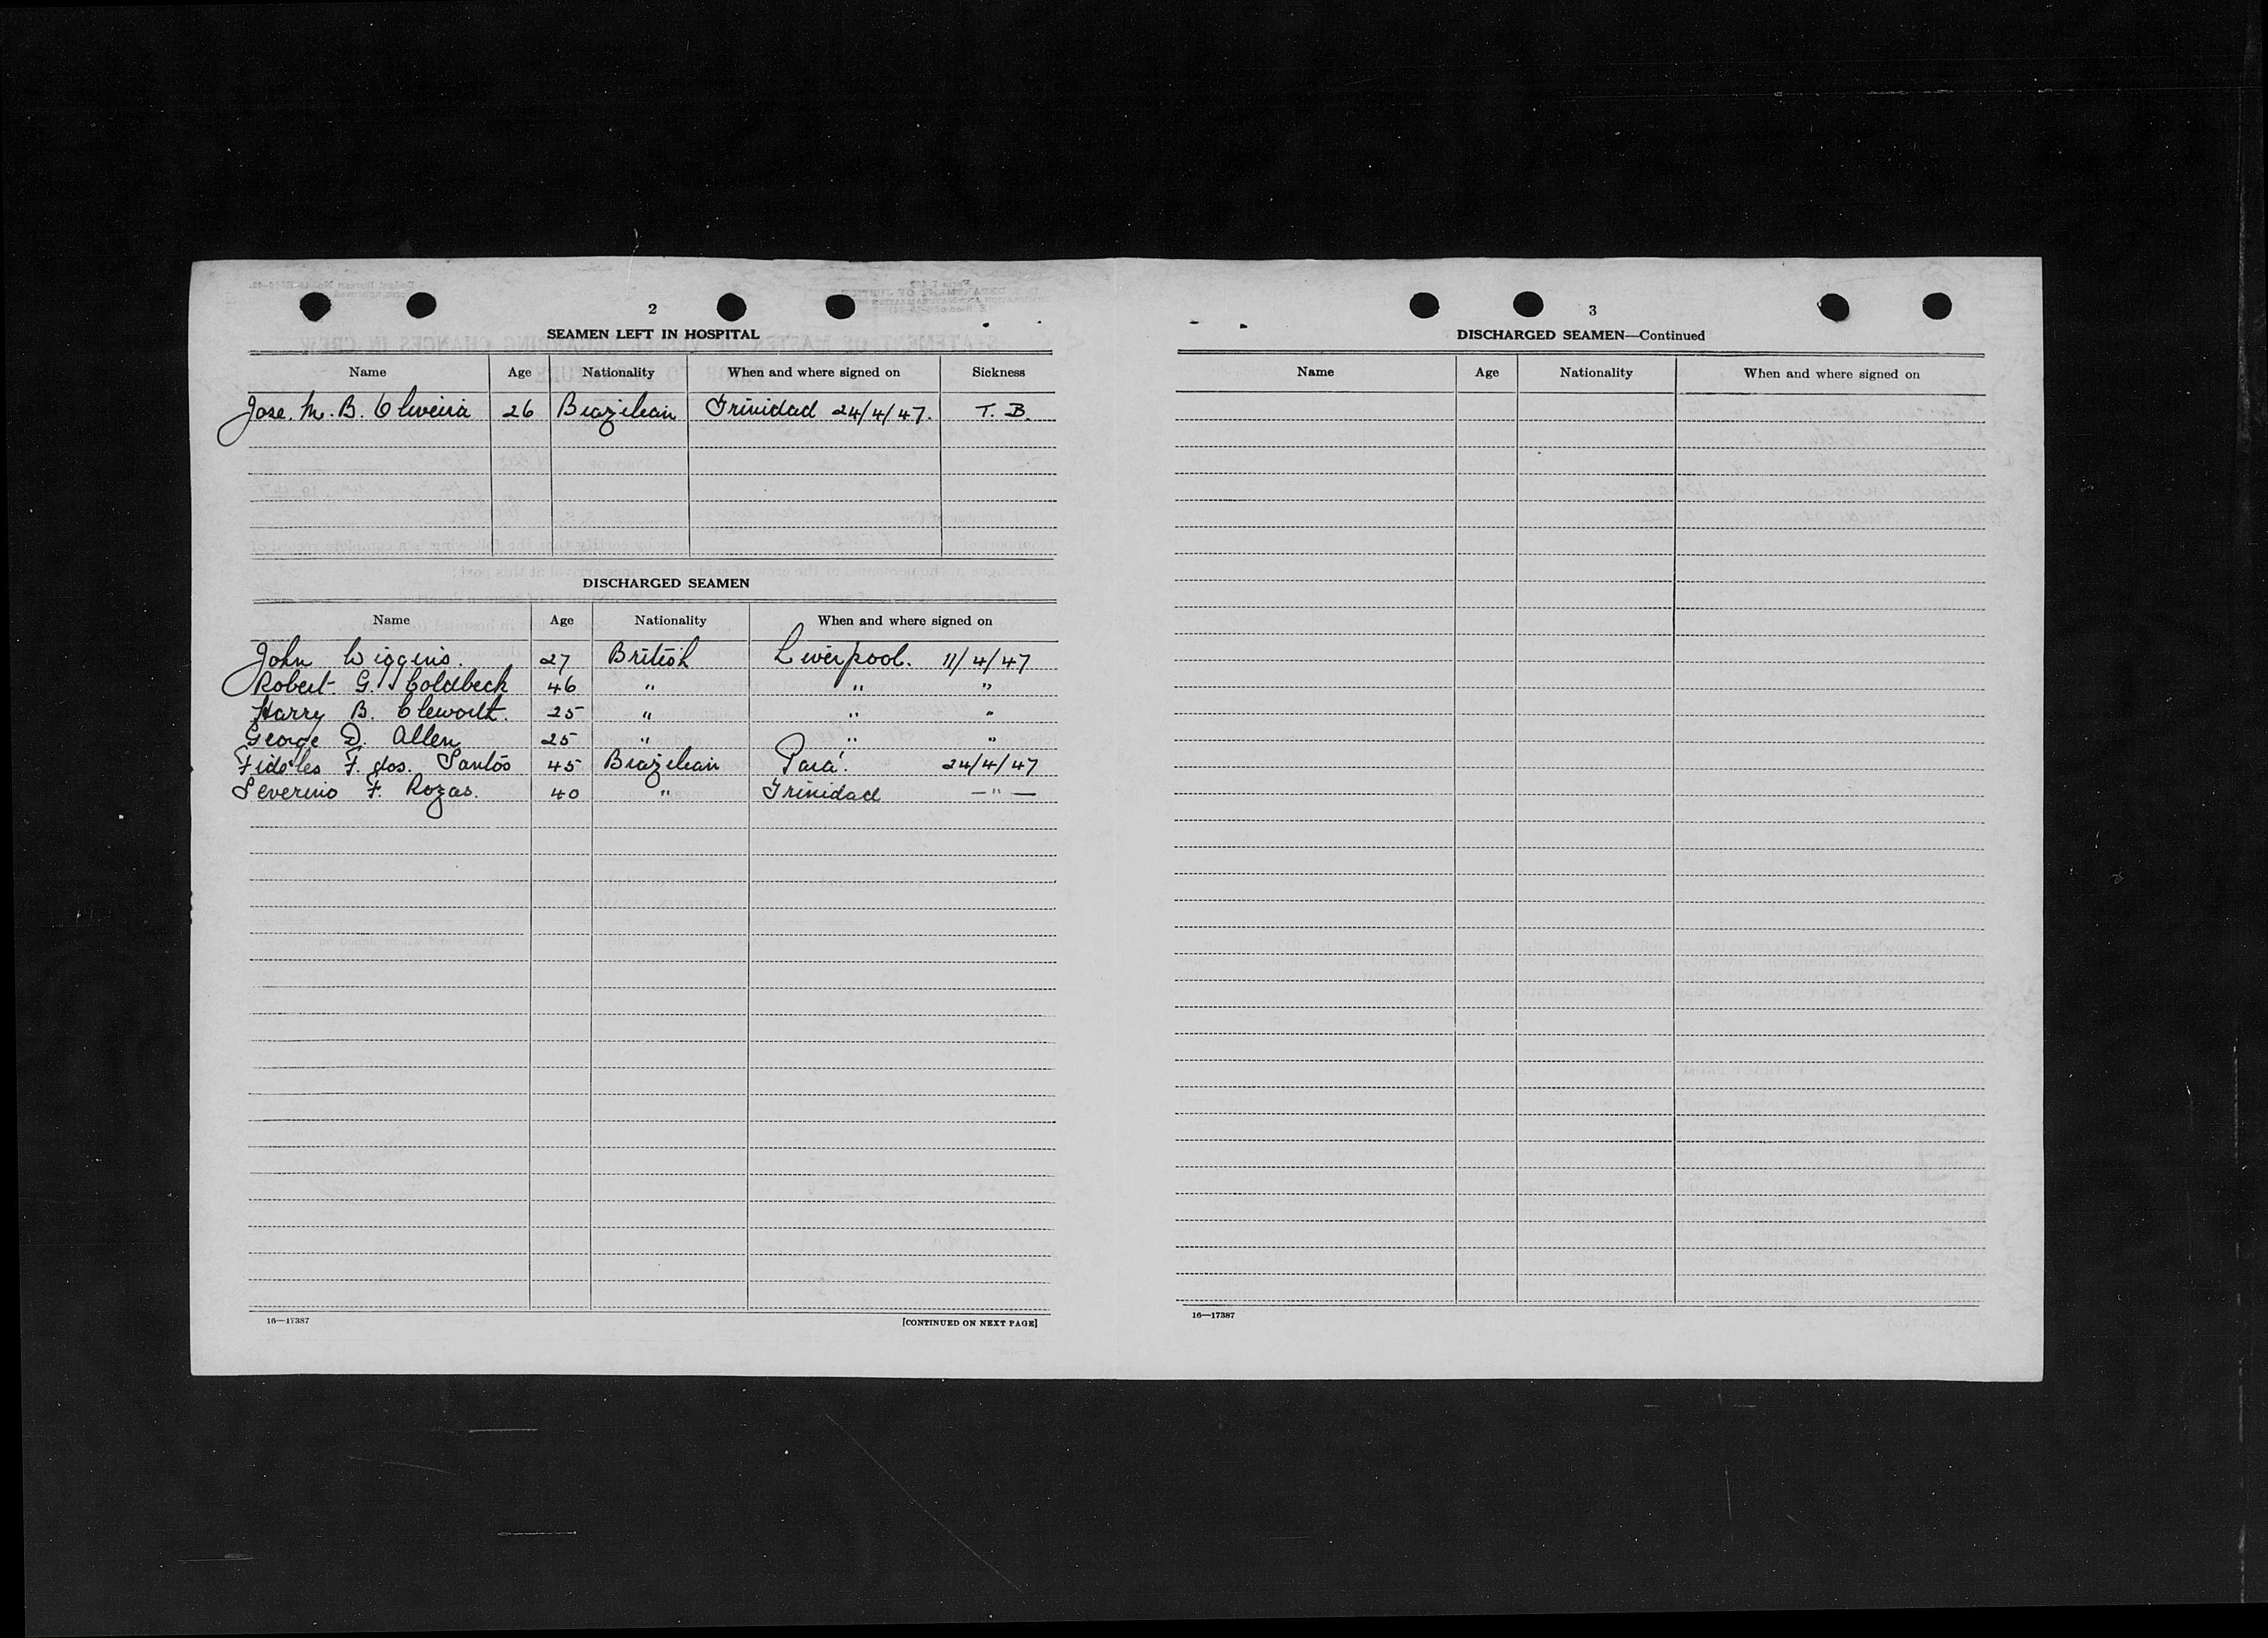 2
SEAMEN LEFT IN HOSPITAL
Name Age Nationality When and where signed on Sickness
Jose. M. B. Oliveira 26 Brazilian Trinidad 24/4/47. T. B.
DISCHARGED SEAMEN
Name Age Nationality When and where signed on
John Wiggins. 27 British Liverpool. 11/4/47
Robert G. Coldbeck 46 " " "
Harry B. Cleworth. 25 " " "
George D. Allen 25 " " "
Fideles F. dos. Santos 45 Brazilian Pará. 24/4/47
Severino F. Rozas. 40 " Trinidad — " —
16—17387 [CONTINUED ON NEXT PAGE]
3
DISCHARGED SEAMEN—Continued
Name Age Nationality When and where signed on
16—17387